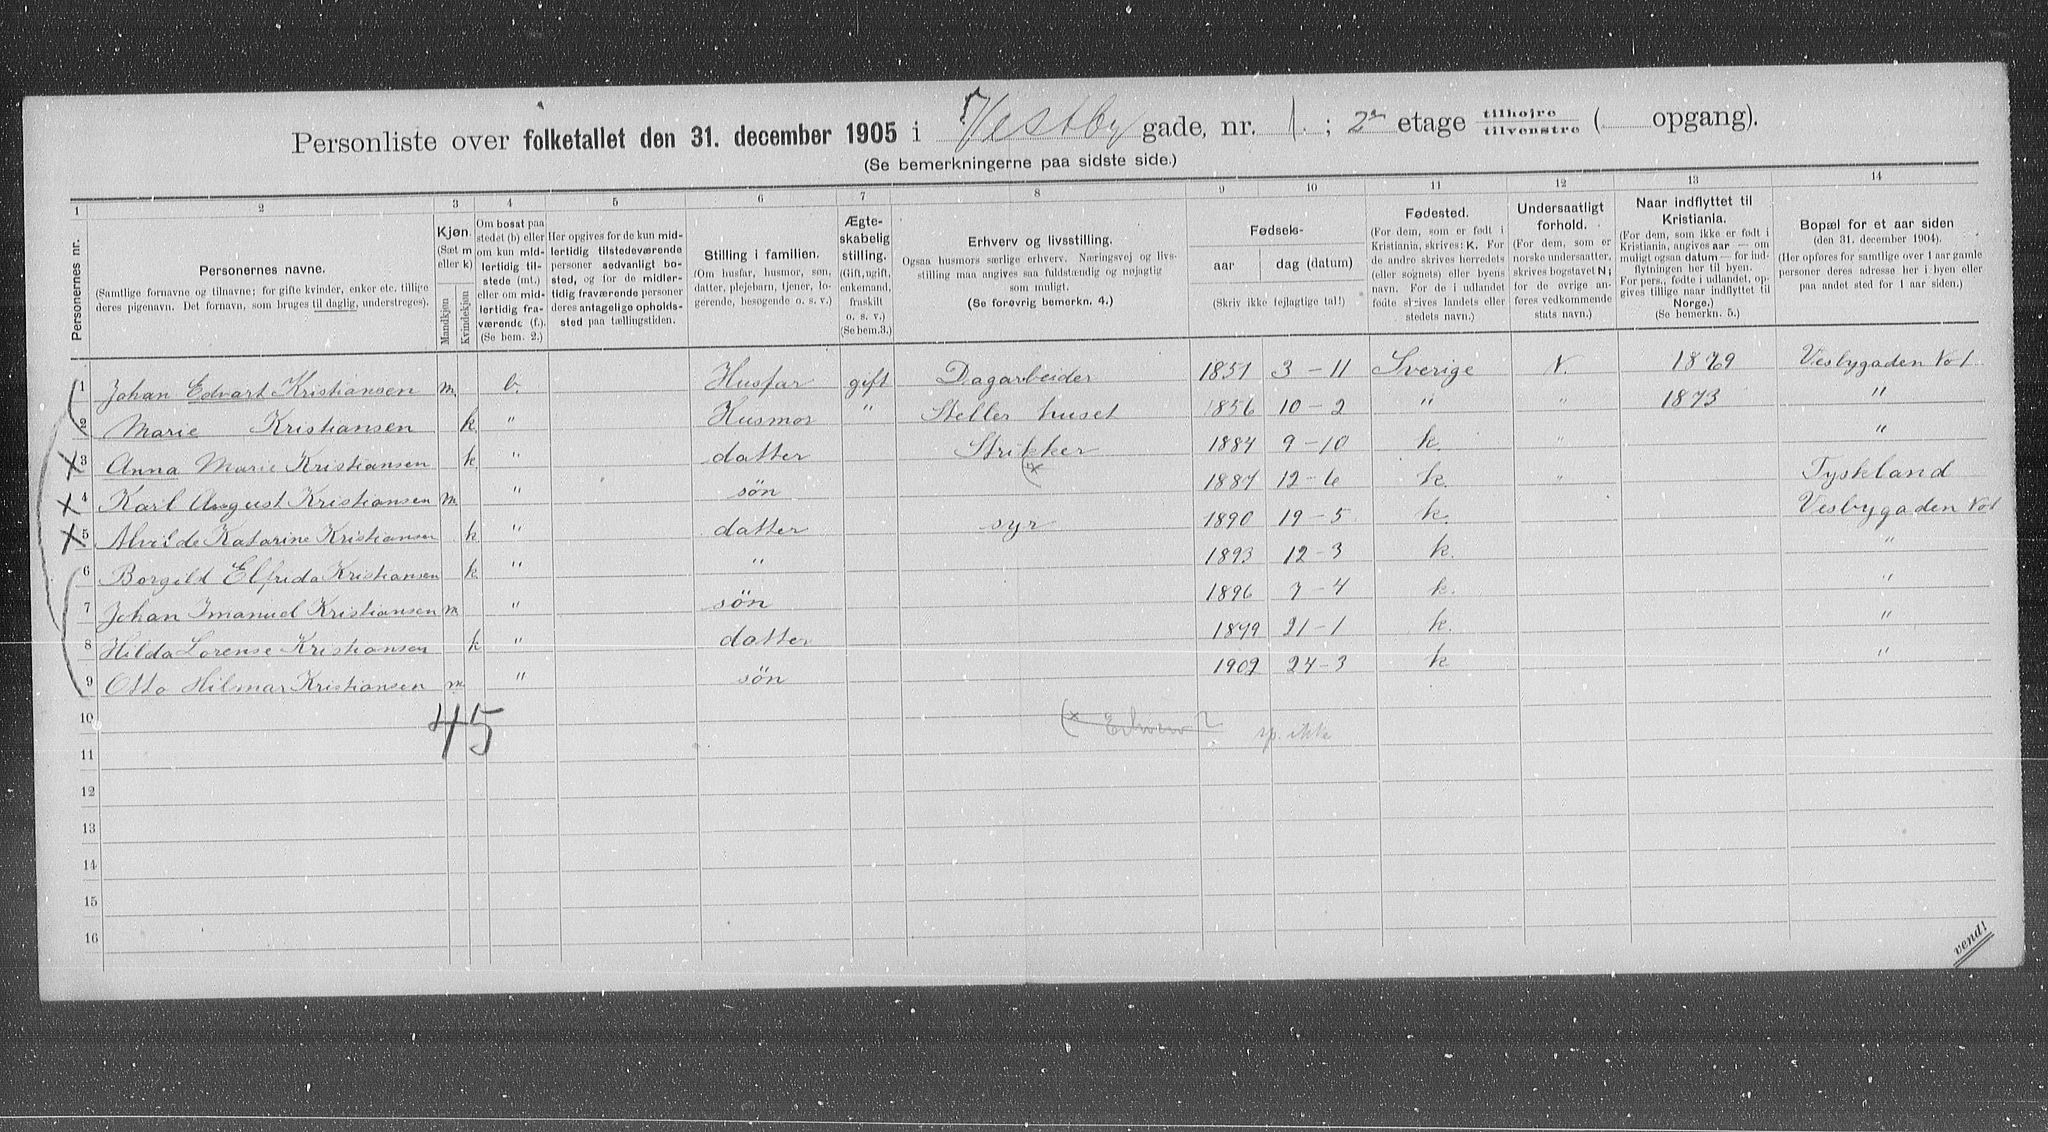 Personliste over folketallet den 31. december 1905 i Vestby gade, nr. 1. ; 2den etage tilhøjre tilvenstre ( opgang).
(Se bemerkningerne paa sidste side.)
1 2 3 4 5 6 7 8 9 10 11 12 13 14
Personernes nr.
Personernes navne.
(Samtlige fornavne og tilnavne; for gifte kvinder, enker etc. tillige
deres pigenavn. Det fornavn, som bruges til daglig, understreges).
Kjøn.
(Sæt m
eller k)
Mandkjøn
Kvindekjøn
Om bosat paa
stedet (b) eller
om kun mid-
lertidig til-
stede (mt.)
eller om mid-
lertidig fra-
værende (f.)
(Se bem. 2.)
Her opgives for de kun mid-
lertidig tilstedeværende
personer sedvanligt bo-
sted, og for de midler-
tidig fraværende personer
deres antagelige opholds-
sted paa tællingstiden.
Stilling i familien.
(Om husfar, husmor, søn,
datter, plejebarn, tjener, lo-
gerende, besøgende o. s. v.)
Ægte-
skabelig
stilling.
(Gift, ugift,
enkemand,
fraskilt
o. s. v.)
(Se bem. 3.)
Erhverv og livsstilling.
Ogsaa husmors særlige erhverv. Næringsvej og livs-
stilling maa angives saa fuldstændig og nøjagtig
som muligt.
(Se forøvrig bemerkn. 4.)
Fødsels-
aar
dag (datum)
(Skriv ikke fejlagtige tal!)
Fødested.
(For dem, som er født i
Kristiania, skrives: K. For
de andre skrives herredets
(eller sognets) eller byens
navn. For de i udlandet
fødte skrives landets eller
stedets navn.)
Undersaatligt
forhold.
(For dem, som er
norske undersaatter,
skrives bogstavet N;
for de øvrige an-
føres vedkommende
stats navn.)
Naar indflyttet til
Kristiania.
(For dem, som ikke er født i
Kristiania, angives aar — om
muligt ogsaa datum — for ind-
flytningen her til byen.
For pers., fødte i udlandet, op-
gives tillige naar indflyttet til
Norge.)
(Se bemerkn. 5.)
Bopæl for et aar siden
(den 31. december 1904).
(Her opføres for samtlige over 1 aar gamle
personer deres adresse her i byen eller
paa andet sted for 1 aar siden.)
1 Johan Edvart Kristiansen m. b. Husfar gift Dagarbeider 1851 3-11 Sverige N. 1879 Vesbygaden No 1
2 Marie Kristiansen k. " Husmor " Steller huset 1856 10-2 " " 1873 "
X 3 Anna Marie Kristiansen k. " datter Strikker 1884 9-10 k. " "
X 4 Karl August Kristiansen m. " søn (x 1887 12-6 k. " Tyskland
X 5 Alvilde Katarine Kristiansen k. " datter syr 1890 19-5 k. Vesbygaden No 1
6 Borgild Elfrida Kristiansen k. " " 1893 12-3 k. "
7 Johan Imanuel Kristiansen m " søn 1896 7-4 k. "
8 Hilda Lorense Kristiansen k " datter 1899 21-1 k. "
9 Otto Hilmar Kristiansen m " søn 1902 24-3 k "
45
10 (x sp. ikke
11
12
13
14
15
16
vend!